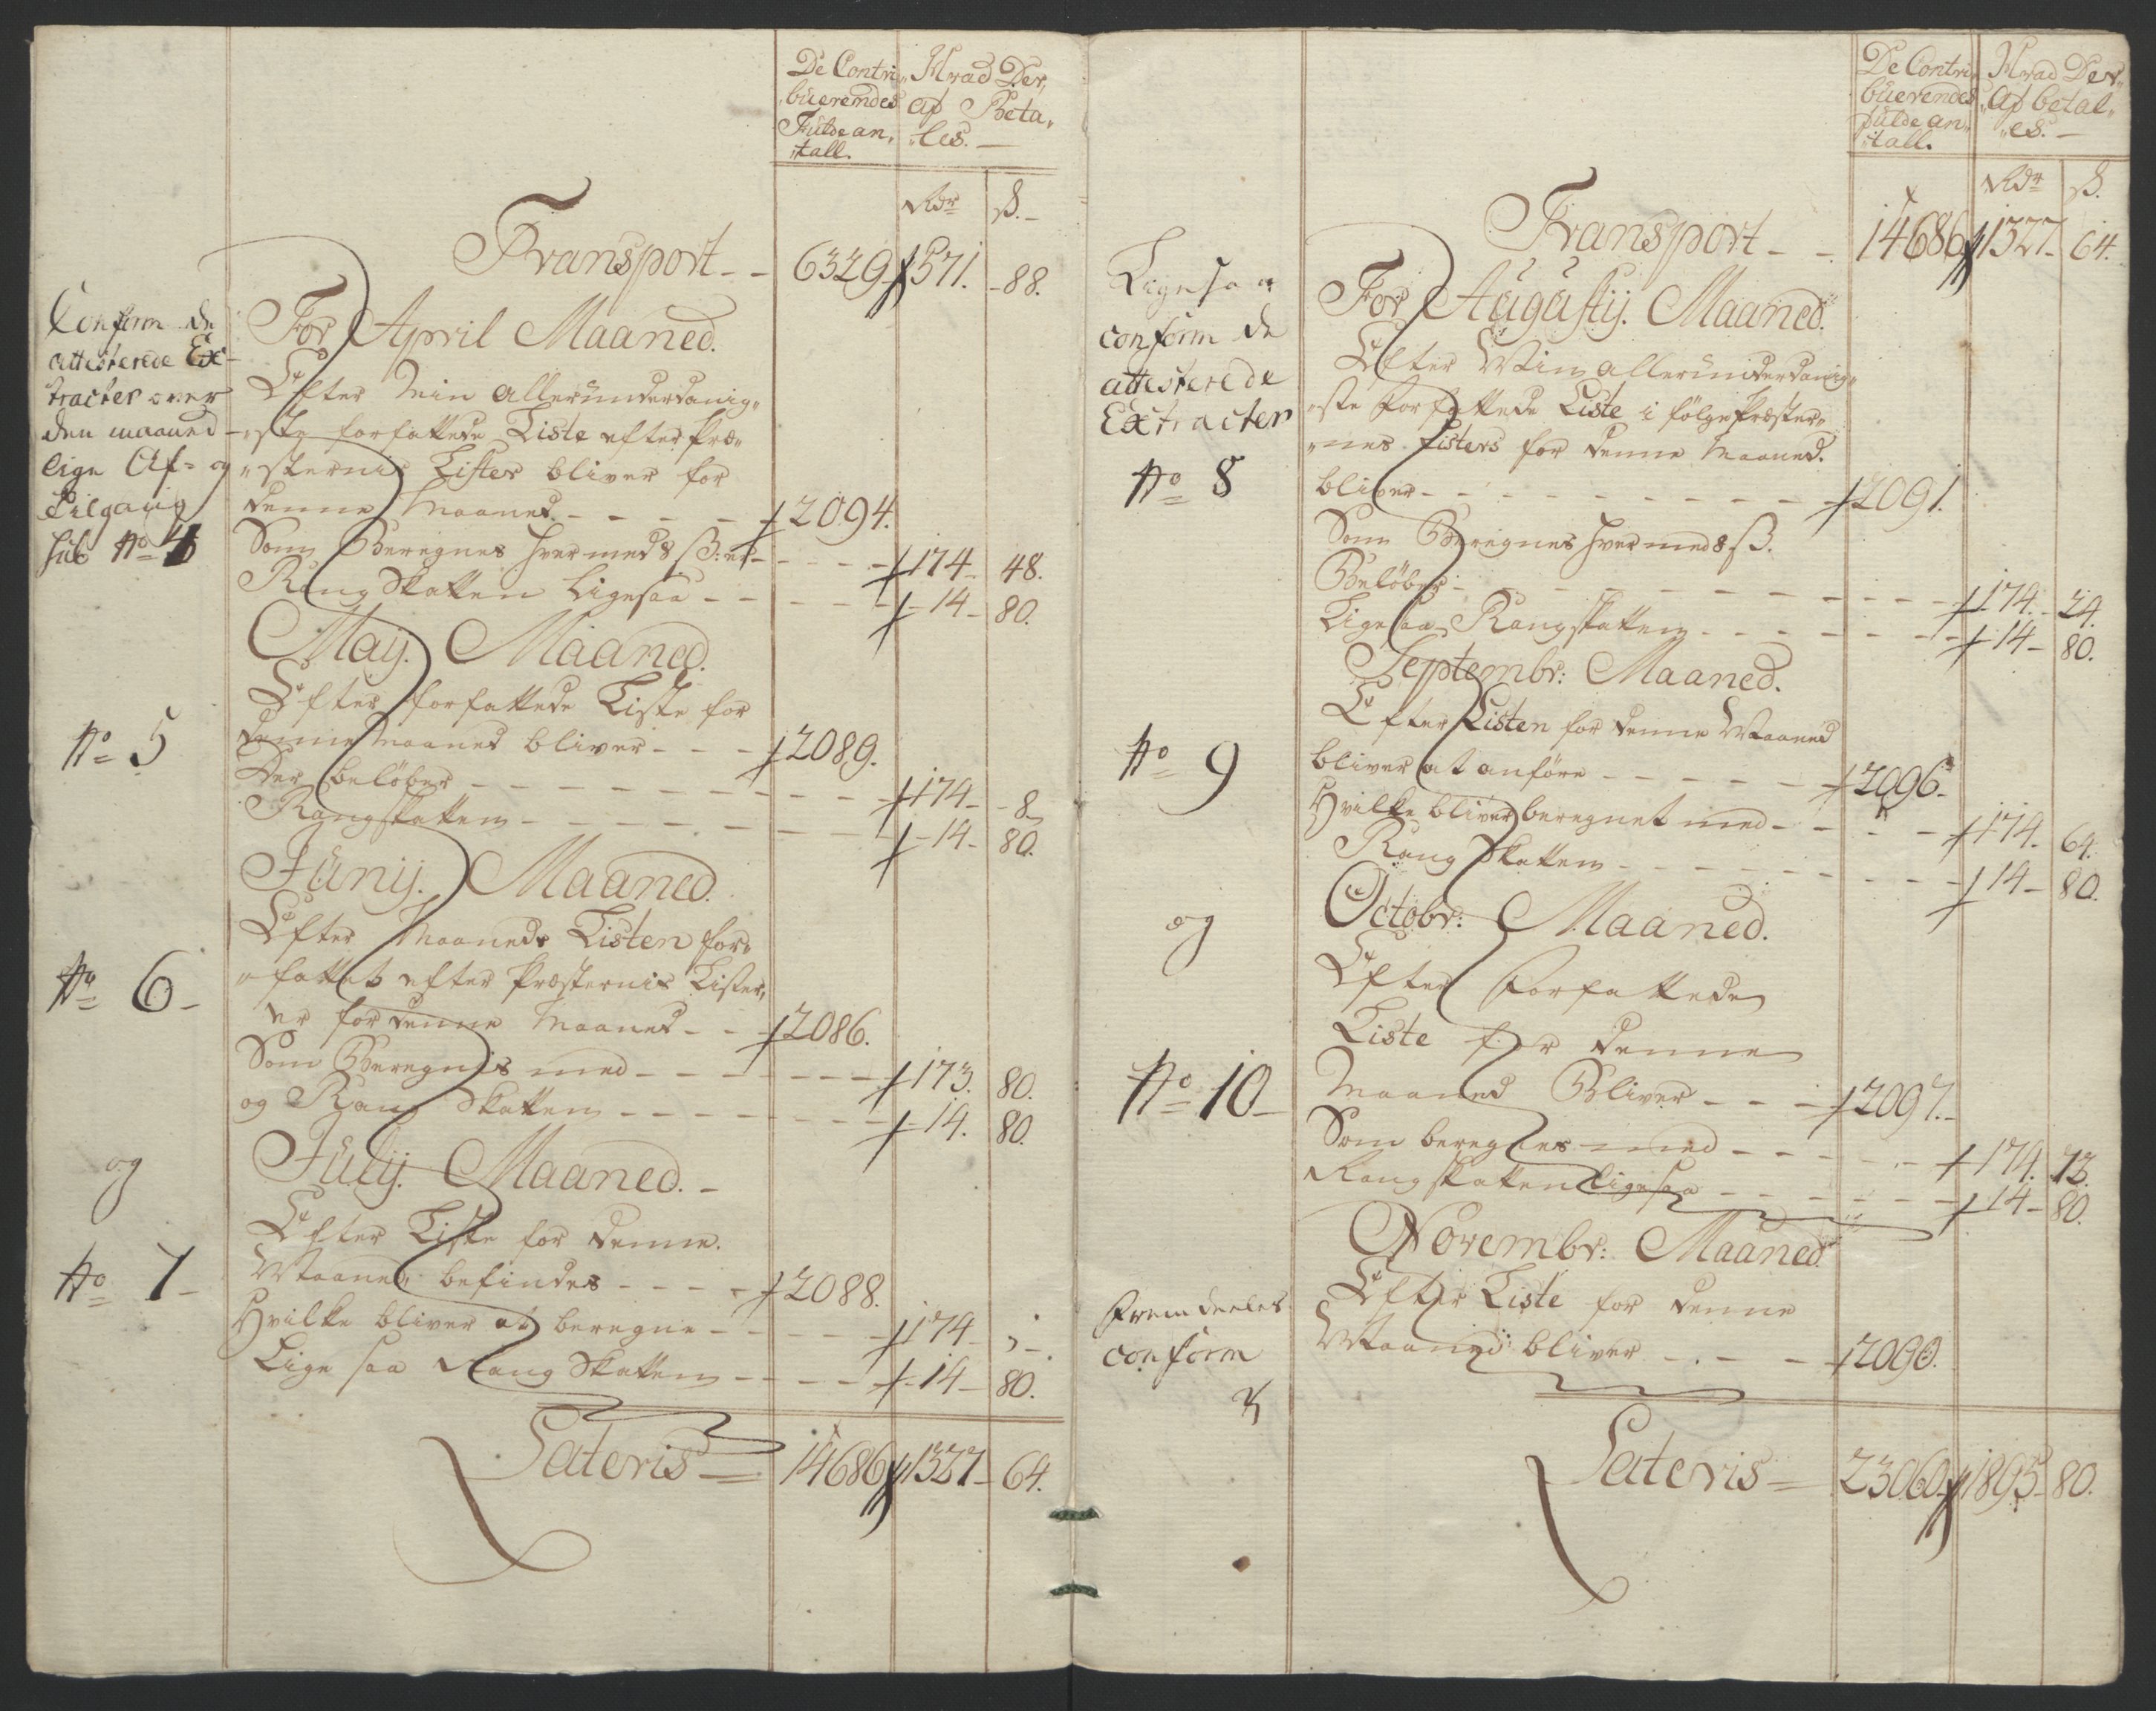 De Contri„ Hvad Der„
buerendes af Beta„
Fulde an„ „les. —
„tall.
Rdr ß. –
Transport – – 6329 – 571. – 88.
Conform de
attesterede Ex-
tracter over
den maaned-
lige Af- og
Tilgang
sub No 4
For April Maaned.
Efter Min allerunderdanig„
„ste forfattede Liste efter Præ„
„sternis Lister bliver for
denne Maaned. – – – – 2094.
Som Beregnes hver med 8 ß: er – – – – 174 – 48.
Rang Skatten Ligesaa – – – – – 14 – 80.
May. Maaned.
Efter forfattede Liste for
No 5
denne Maaned bliver – – – 2089.
Der beløber – – – – – – – – 174 – – 8
Rangskatten – – – – – – – – – 14 – 80.
Junij. Maaned.
Efter Maaneds Listen for„
No 6 –
„fattet efter Præsternis Lister„
er for denne Maaned – – 2086.
Som Beregnis med – – – – – – 173. 80.
og Rang Skatten – – – – – – – 14. 80.
og
Julij. Maaned. –
Efter Liste for denne.
No 7 –
Maaned befindes – – – – 2088.
Hvilke bliver at beregne – – – – – 174 – „ – .
Lige saa Rang Skatten – – – – – 14 – 80.
Lateris = 14686 1327 – 64.
De Contri„ Hvad Der„
buerendes „Af betal„
fulde an„ „es. –
„tall.
Rdr ß.
Transport – – 14686 1327 – 64.
Ligesaa
conform de
attesterede
Extracter
No 8
For Augustij. Maaned.
Efter Min allerunderdanig„
„ste forfattede Liste i følge Præster„
„nes Listers for denne Maaned.
bliver – – – – – – – – – 2091.
Som Beregnes hver med 8 ß.
Beløber – – – – – – – – – – 174. – 24.
Ligesaa Rangskatten – – – – – – – 14 – 80.
Septembr: Maaned.
Efter Listen for denne Maaned
No 9
bliver at anføre – – – – – – 2096 –
Hvilke bliver beregnet med – – – – – 174. 64.
Rang Skatten – – – – – – – – – – 14 – 80.
og
Octobr: Maaned.
Efter Forfattede
Liste for denne
No 10 –
Maaned Bliver – – – 2097. –
Som beregnes med – – – – – – 174. 72.
Rangskatten ligesaa – – – – – – 14 – 80.
Novembr: Maaned
Efter Liste for denne
Fremdeeles
conform
Maaned bliver – . – – 2090.
Lateris = 23060 1895 – 80.